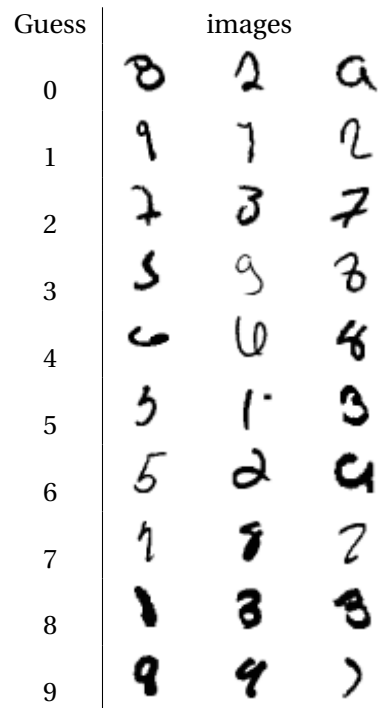 Guess images
0 8 2 a
1 9 7 2
2 7 3 7
3 3 9 8
4 6 6 8
5 5 1 3
6 5 2 a
7 7 8 7
8 1 3 8
9 9 4